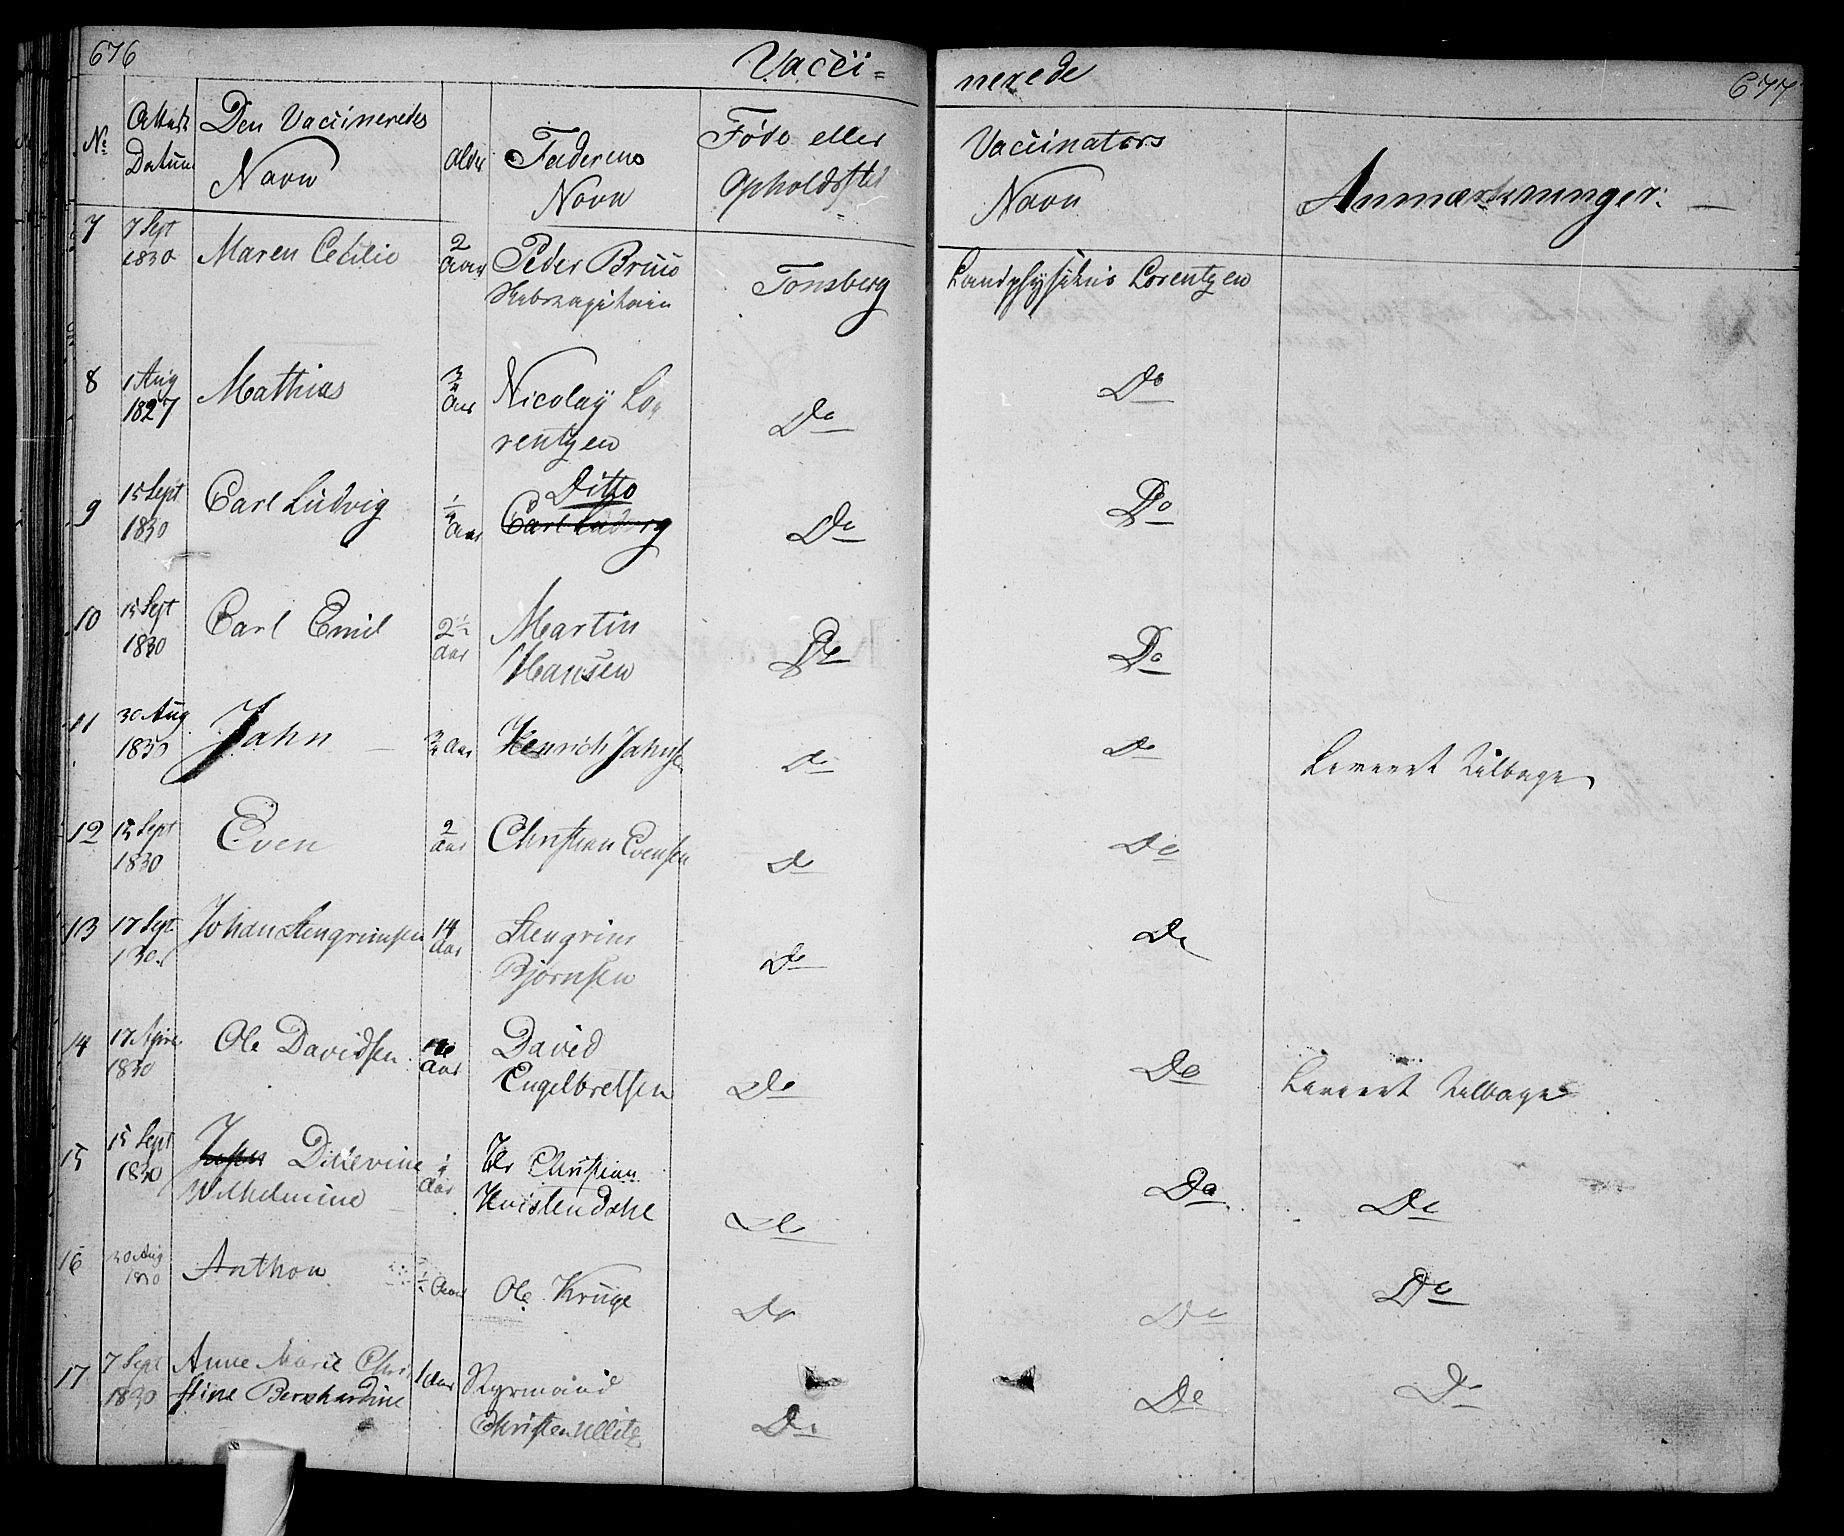 676
Vacci=
nerede
677
No
Attest
Datum
Den Vaccineredes
Navn
Alder
Faderens
Navn
Føde eller
Opholdssted
Vaccinators
Navn
Anmærkninger:
7
7 Sept
1830
Maren Cecilie
2
Aar
Peder Bruus
Tonsberg
Landphysikus Lorentzen
8
1 Aug
1827
Mathias
3/4
Aar
Nicolay Lo-
rentzen
Do
Do
9
15 Sept
1830
Carl Ludvig
Aar
Ditto
Carl Ludvig
Do
Do
10
15 Sept
1830
Carl Emil
2 1/2
Aar
Martin
Hansen
Do
Do
11
30 Aug
1830
Jahn
3/4 Aar
Henrich Jahnsen
Do
Do
Leveert tilbage
12
15 Sept
1830
Even
2
Aar
Christian Evensen
Do
Do
13
17 Sept
1830
Johan Stengrimsen
14
Aar
Stengrim
Bjørnsen
Do
Do
14
17
1830
Ole Davidsen
Aar
David
Engelbretsen
Do
Do
Leveert tilbage
15
15 Sept
1830
Wilhelmine
Aar
Hr Christian
Do
Do
Do
16
30 Aug
1830
Anthon
Aar
Ole Kruge
Do
Do
Do
17
7 Sept
1830
Anne Marie Chri-
stine Bernhardine
1 Aar
Do
Do
Do